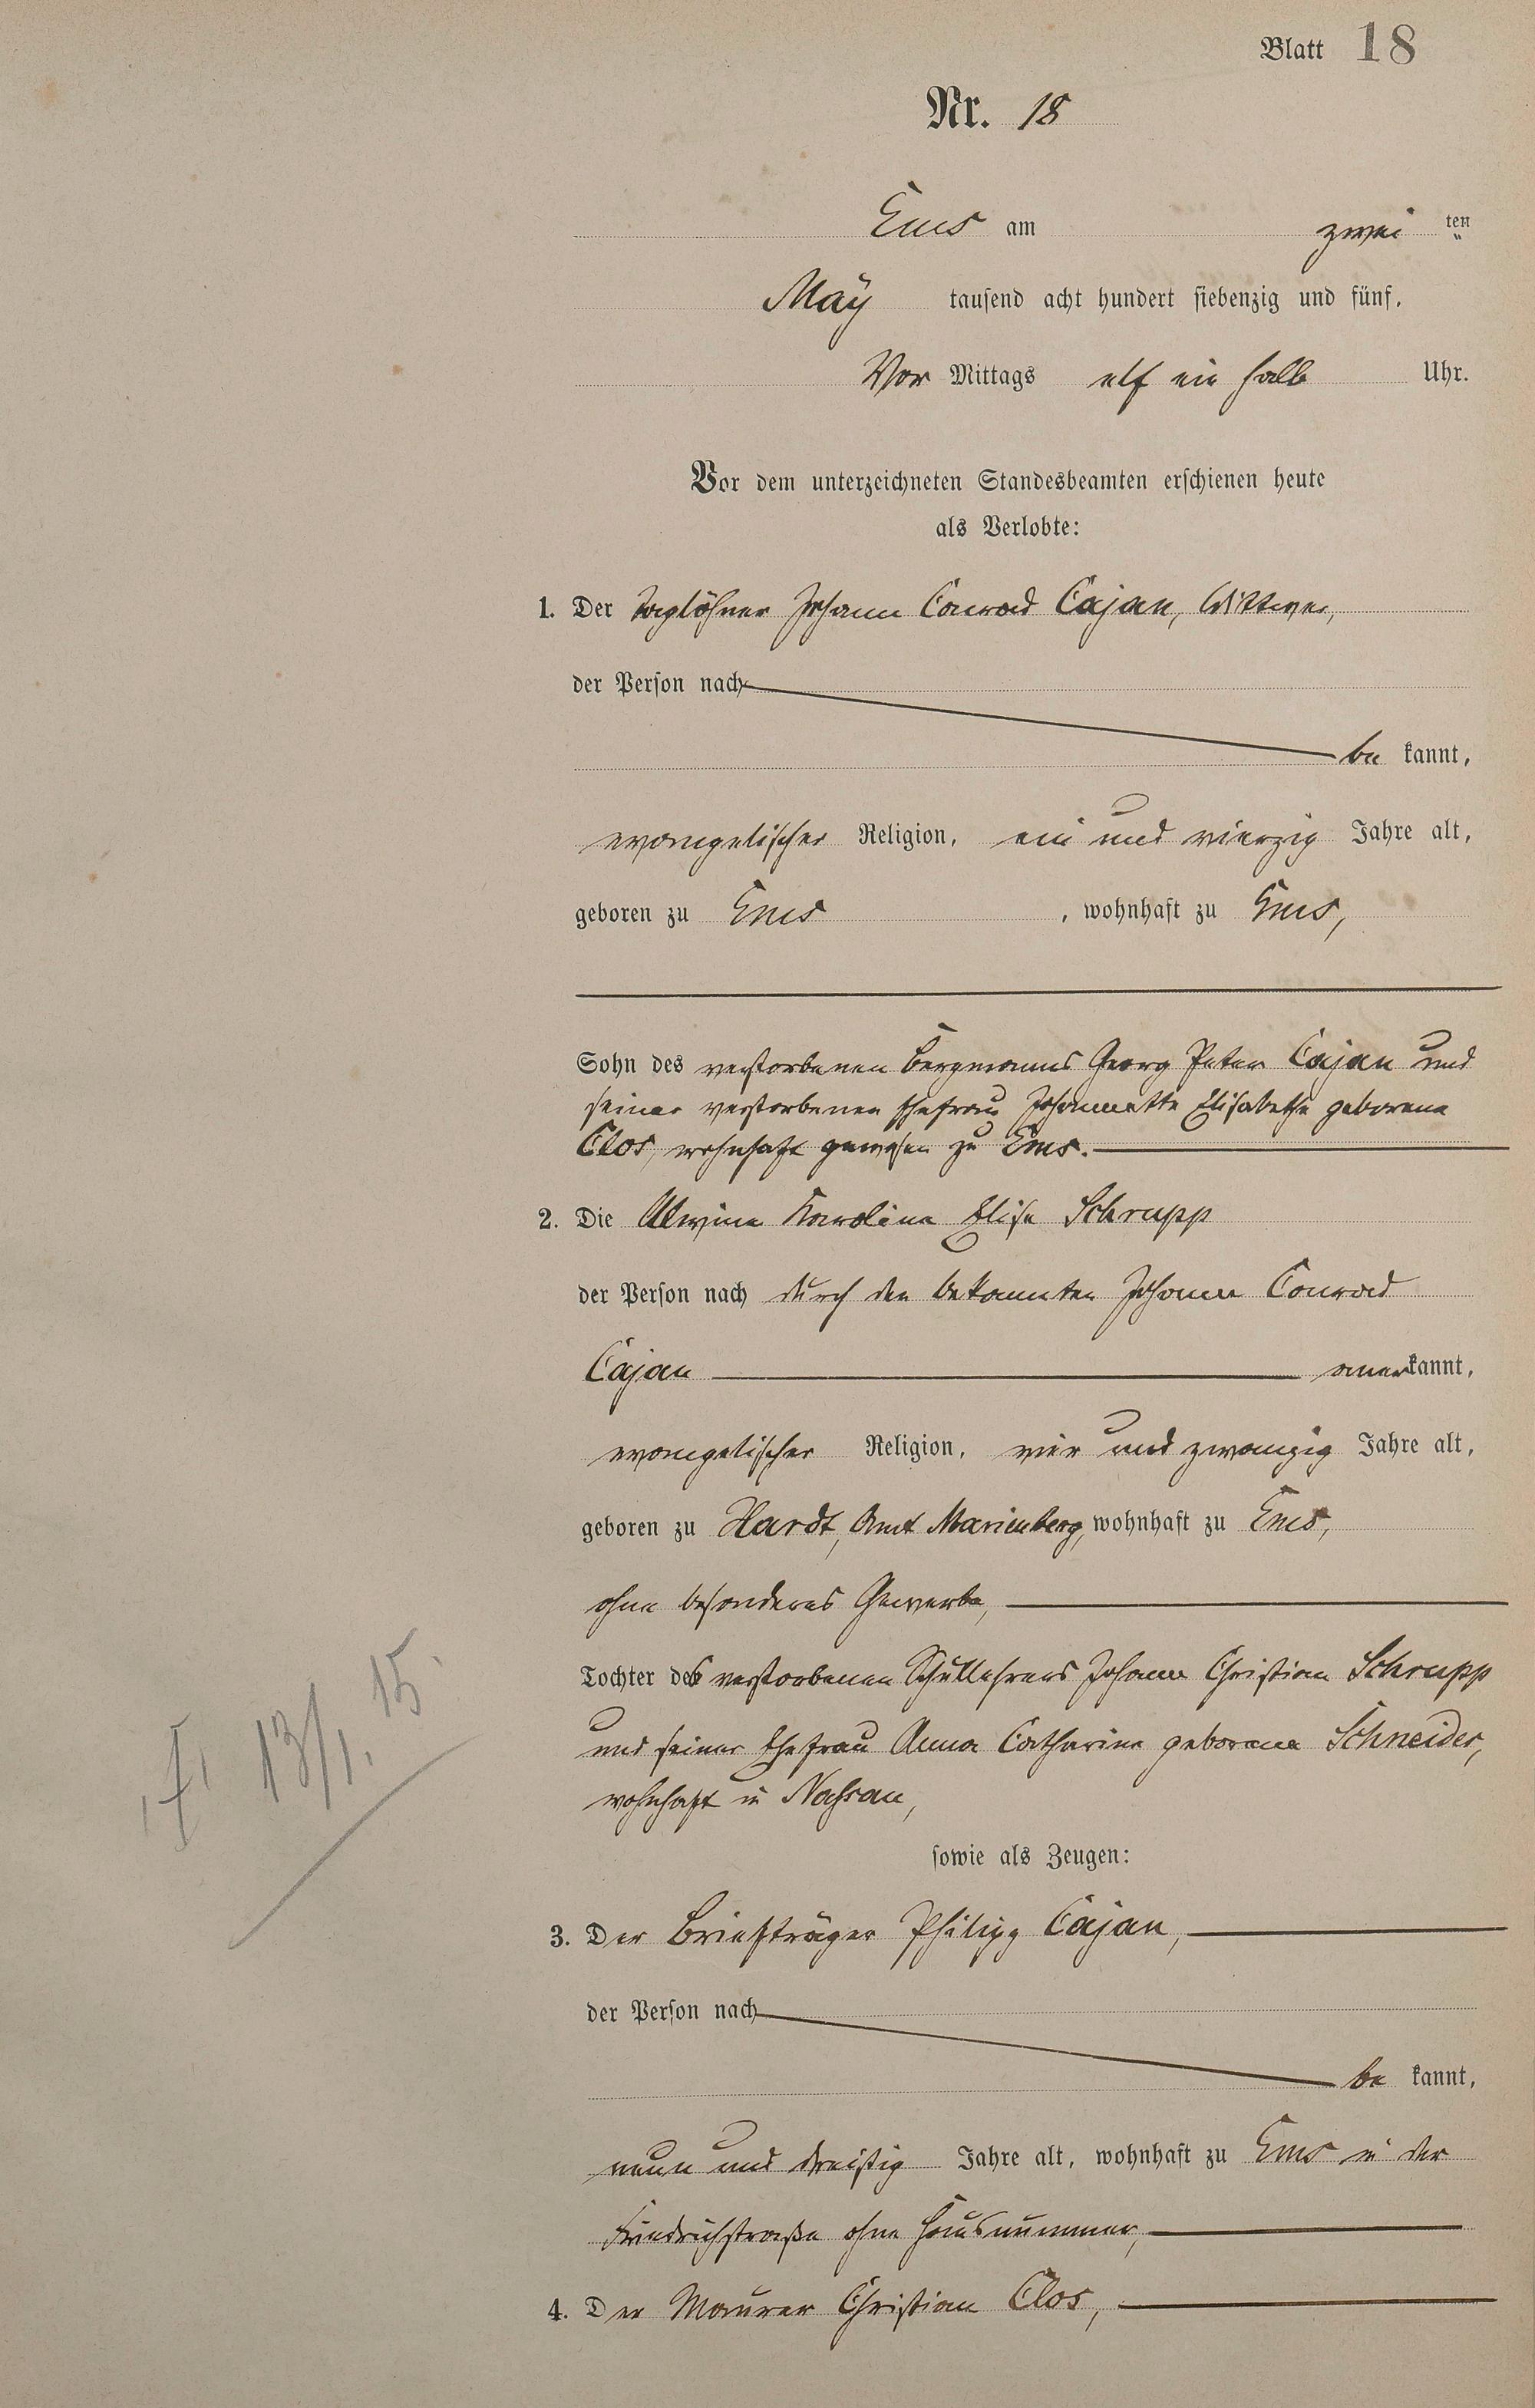 Blatt 18
Nr. 18
Ems am zwei ten
May tausend acht hundert siebenzig und fünf,
Vor Mittags elf ein halb Uhr.
Vor dem unterzeichneten Standesbeamten erschienen heute
als Verlobte:
1. Der Taglöhner Johann Conrad Cajan, Wittwer,
der Person nach
be kannt,
evangelischer Religion, ein und vierzig Jahre alt,
geboren zu Ems, wohnhaft zu Ems,
Sohn des verstorbenen Bergmanns Georg Peter Cajan und
seiner verstorbenen Ehefrau Johannette Elisabethe geborene
Clos, wohnhaft gewesen zu Ems.
2. Die Alwine Karoline Elise Schrupp
der Person nach durch den bekannten Johann Conrad
Cajan anerkannt,
evangelischer Religion, vier und zwanzig Jahre alt,
geboren zu Hardt, Amt Marienberg, wohnhaft zu Ems,
ohne besonderes Gewerbe,
Tochter des verstorbenen Schullehrers Johann Christian Schrupp
und seiner Ehefrau Anna Catharine geborene Schneider,
wohnhaft in Nassau,
sowie als Zeugen:
3. Der Briefträger Philipp Cajan,
der Person nach
be kannt,
neun und dreißig Jahre alt, wohnhaft zu Ems in der
Friedrichstraße ohne Hausnummer,
4. Der Maurer Christian Clos,
13/1. 15.